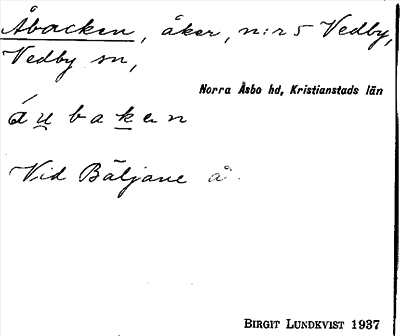 Åbacken, åker, n:r 5 Vedby,
Vedby sn,
Norra Åsbo hd, Kristianstads län
áu̲bak̲en
Vid Bäljane å.
BIRGIT LUNDKVIST 1937